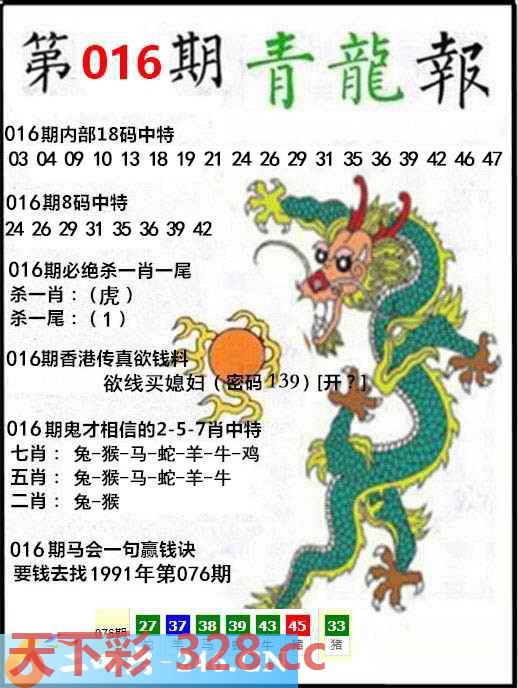 第016期 青龍報
016期内部18码中特
03 04 09 10 13 18 19 21 24 26 29 31 35 36 39 42 46 47
016期8码中特
24 26 29 31 35 36 39 42
016期必绝杀一肖一尾
杀一肖：（虎）
杀一尾：（1）
016期香港传真欲钱料
欲线买媳妇（密码139）[开？]
016期鬼才相信的2-5-7肖中特
七肖：兔-猴-马-蛇-羊-牛-鸡
五肖：兔-猴-马-蛇-羊-牛
二肖：兔-猴
016期马会一句赢钱诀
要钱去找1991年第076期
076期 27 37 38 39 43 45 33
羊 马 牛 猪 猪
天下彩-328.cc